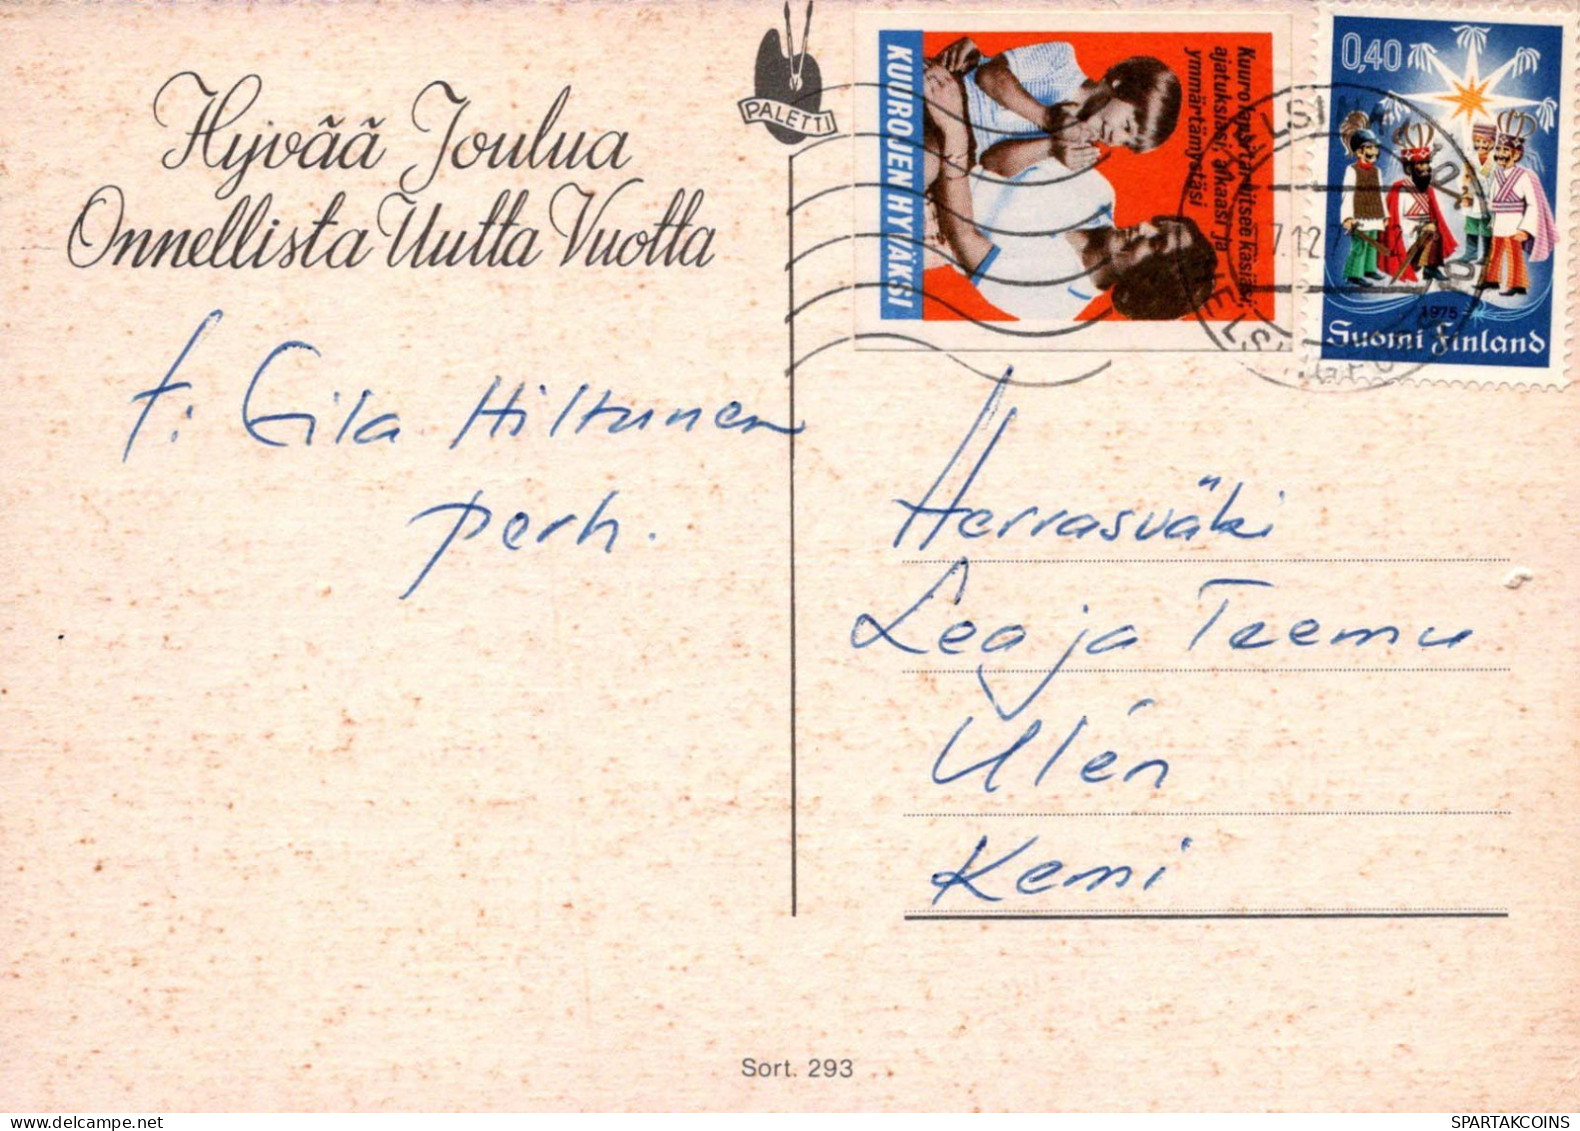 Hyvää Joulua
Onnellista Uutta Vuotta
PALETTI
KUUROJEN HYVÄKSI
ajatuksiasi, aikaasi ja
ymmärtämystäsi
0,40
1975
Suomi Finland
f: Eila Hiltunen
perh.
Herrasväki
Lea ja Teemu
Ulén
Kemi
Sort. 293
SPARTAKCOINS